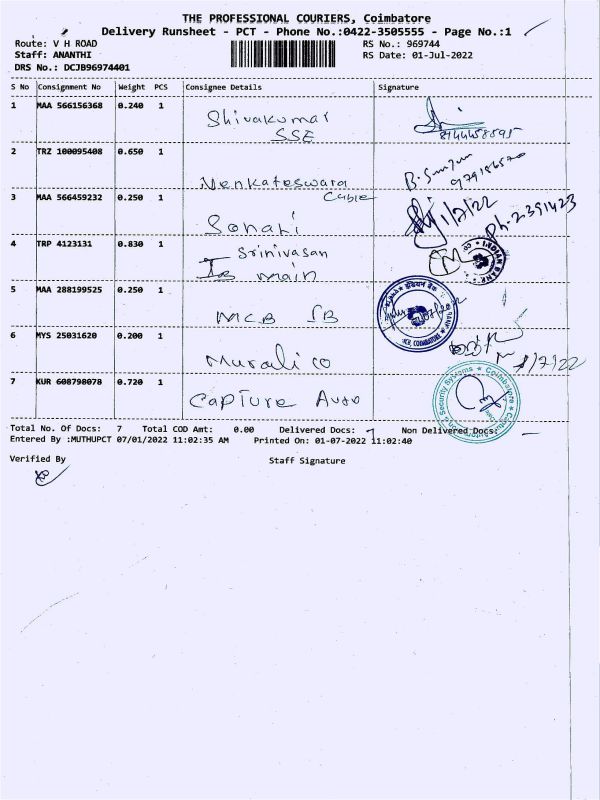 THE PROFESSIONAL COURIERS, Coimbatore
Delivery Runsheet - PCT - Phone No.:0422-3505555 - Page No.:1
Route: V H ROAD RS No.: 969744
Staff: ANANTHI RS Date: 01-Jul-2022
DRS No.: DCJB96974401
S No Consignment No Weight PCS Consignee Details Signature
1 MAA 566156368 0.240 1 Shivakumar
SSE
2 TRZ 100095408 0.650 1
Venkateswara
Cable
3 MAA 566459232 0.250 1 1/7/22
Sonani Ph:2391423
4 TRP 4123131 0.830 1 Srinivasan
IB main INDIAN BANK
5 MAA 288199525 0.250 1
MCB SB
6 MYS 25031620 0.200 1
Murali co 1/7/22
7 KUR 608798078 0.720 1
Capture Auto
Total No. Of Docs: 7 Total COD Amt: 0.00 Delivered Docs: 7 Non Delivered Docs: -
Entered By :MUTHUPCT 07/01/2022 11:02:35 AM Printed On: 01-07-2022 11:02:40
Verified By Staff Signature